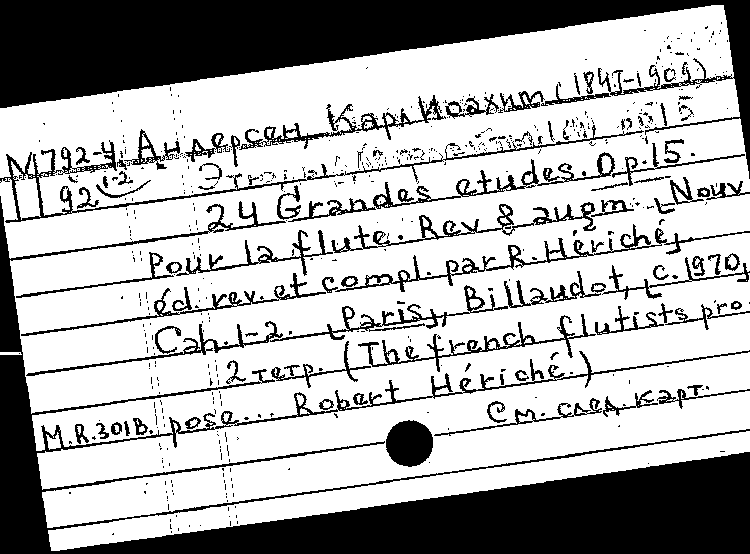 М 792-4 Андерсен, Карл Иоахим (1847-1909)
92 1-2 Этюды оp 15
24 Grandes etudes. Op.15.
Pour la flute. Rev & augm. [Nouv
éd. rev. et compl. par R. Hériché].
Cah. 1-2. [Paris], Billaudot, [c. 1970]
2 тетр. (The french flutists pro-
M.R.301B. pose... Robert Hériché.)
См. след. карт.